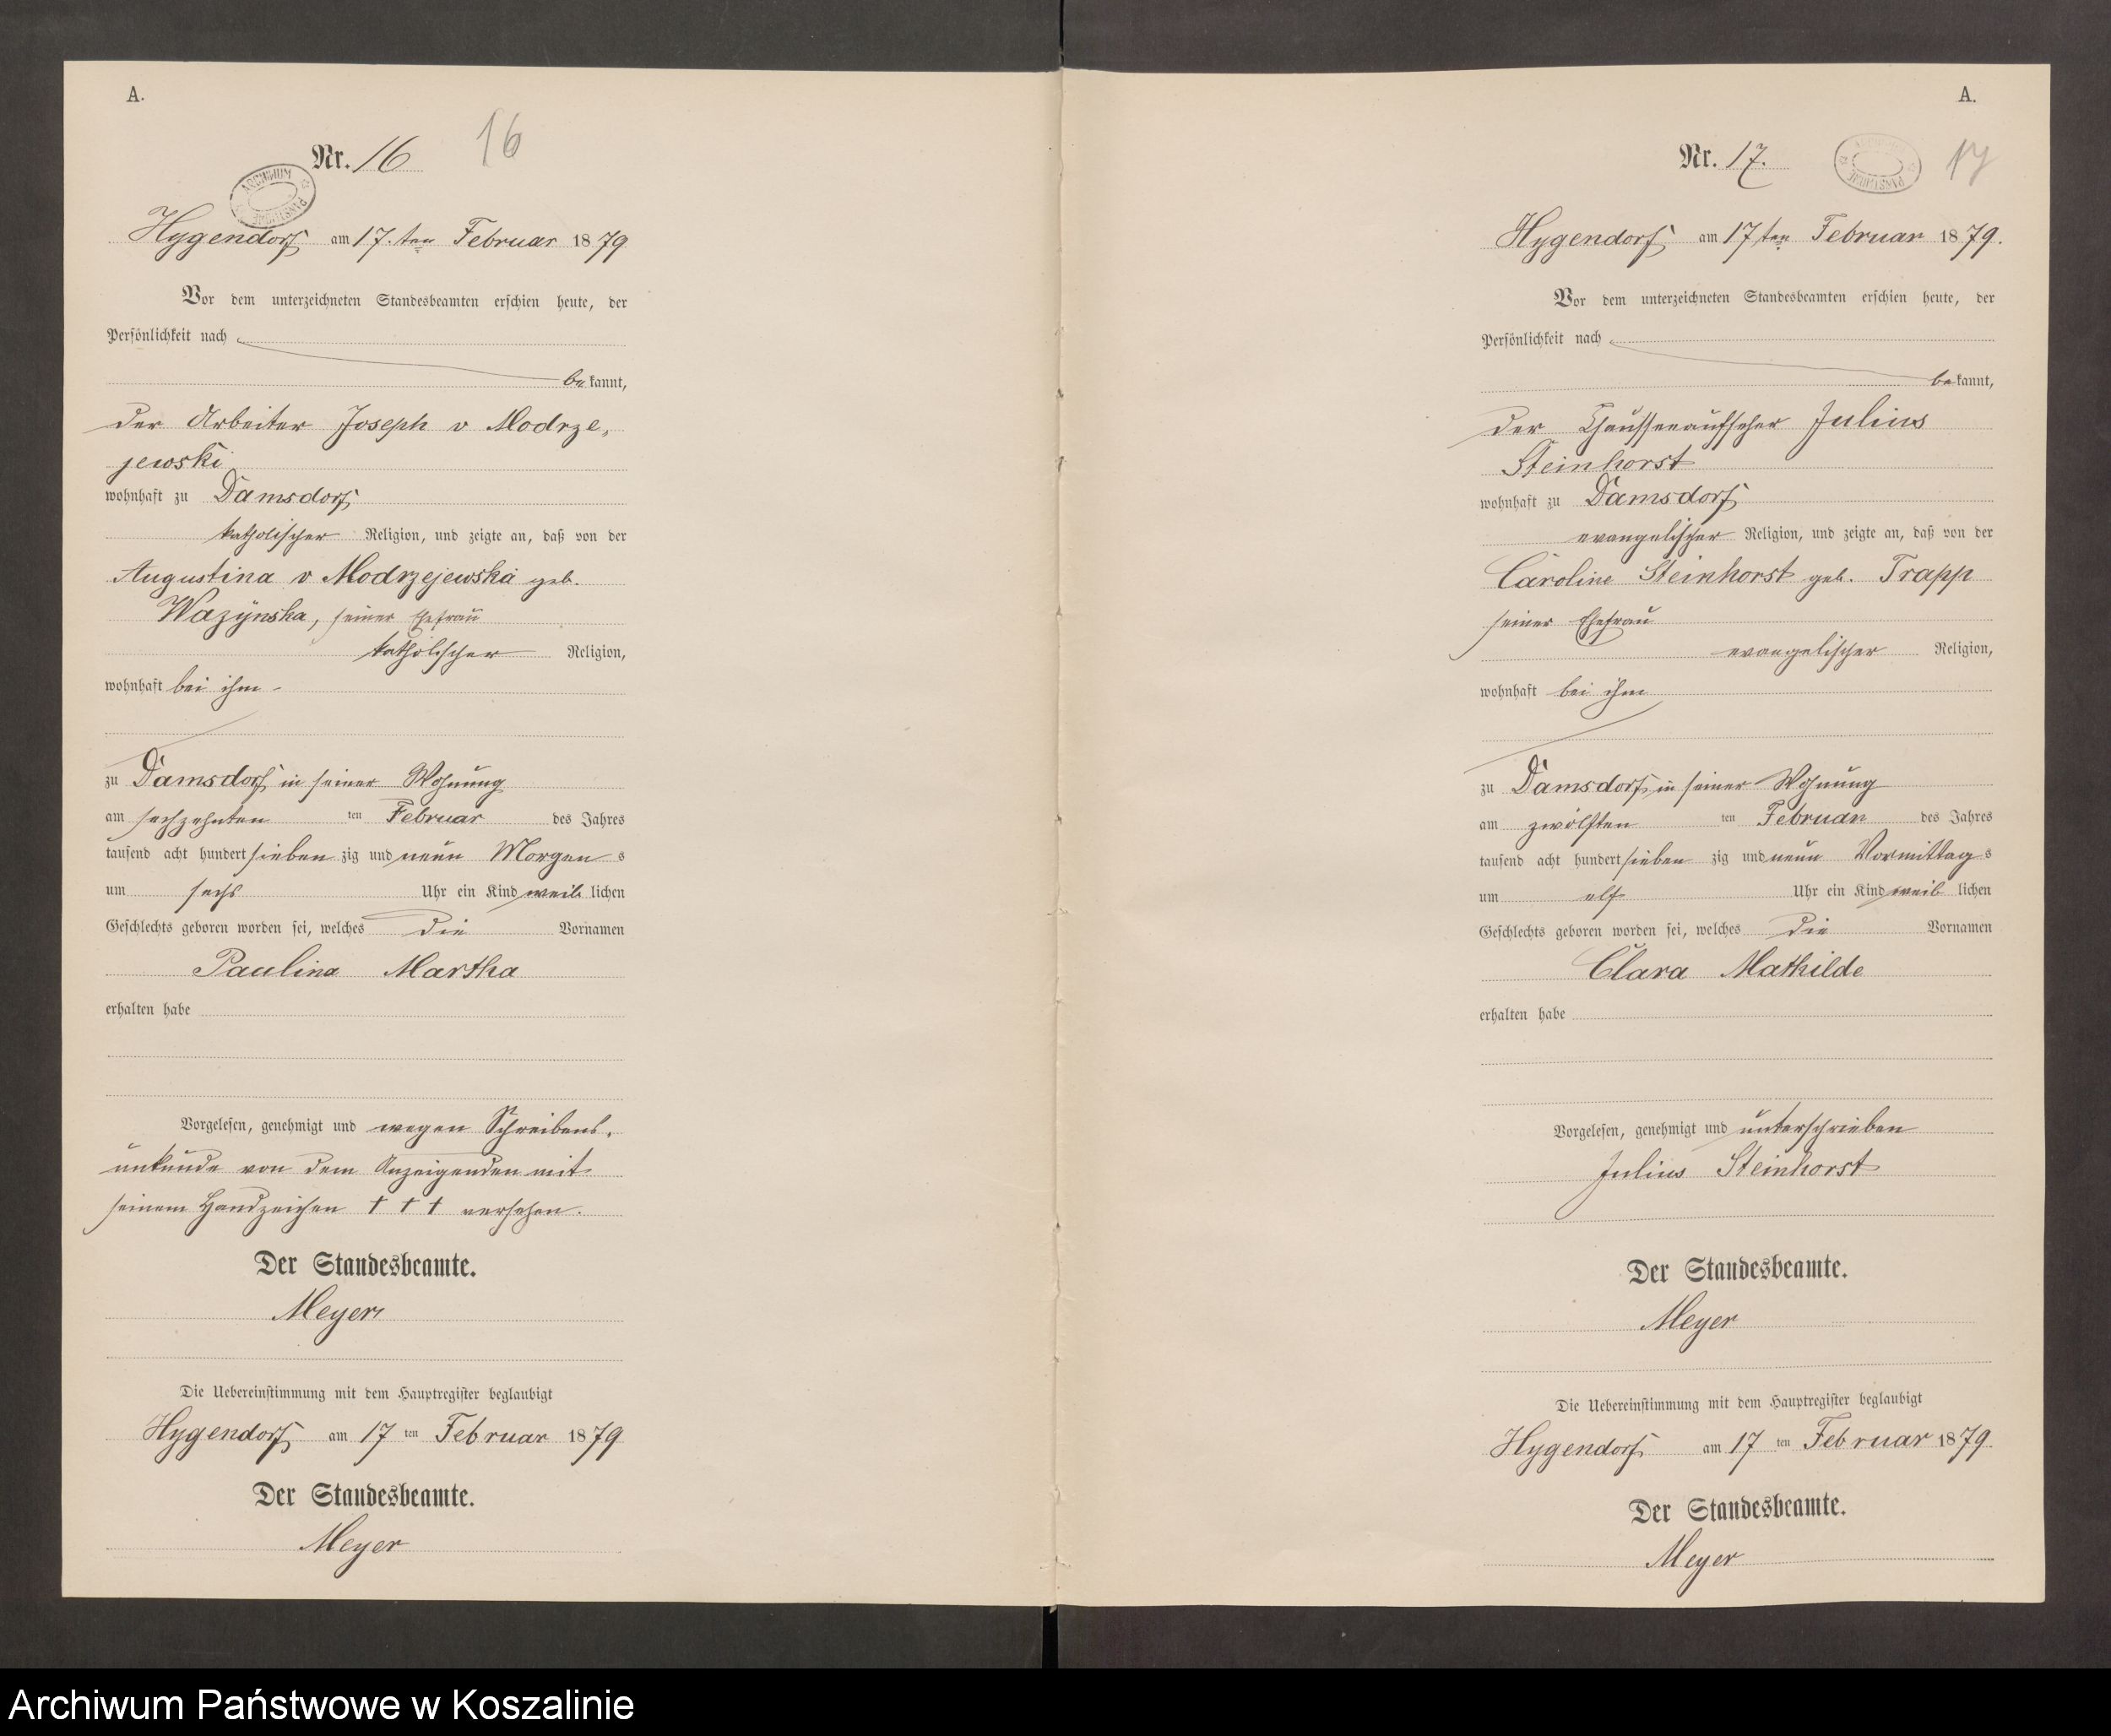 A.
Nr. 16
16
ARCHIWUM PAŃSTWOWE
Hygendorf am 17. ten Februar 1879
Vor dem unterzeichneten Standesbeamten erschien heute, der
Persönlichkeit nach
bekannt,
der Arbeiter Joseph v Modrze,
jewski
wohnhaft zu Damsdorf
katholischer Religion, und zeigte an, daß von der
Augustina v Modrzejewska geb.
Wazÿnska, seiner Ehefrau
katholischer Religion,
wohnhaft bei ihm
zu Damsdorf in seiner Wohnung
am sechzehnten ten Februar des Jahres
tausend acht hundert sieben zig und neun Morgen s
um sechs Uhr ein Kind weib lichen
Geschlechts geboren worden sei, welches die Vornamen
Paulina Martha
erhalten habe
Vorgelesen, genehmigt und wegen Schreibens,
unkunde von dem Anzeigenden mit
seinem Handzeichen † † † versehen.
Der Standesbeamte.
Meyer
Die Uebereinstimmung mit dem Hauptregister beglaubigt
Hygendorf am 17 ten Februar 1879
Der Standesbeamte.
Meyer
A.
Nr. 17.
17
Hygendorf am 17 ten Februar 1879.
Vor dem unterzeichneten Standesbeamten erschien heute, der
Persönlichkeit nach
bekannt,
der Chausseeaufseher Julius
Steinhorst
wohnhaft zu Damsdorf
evangelischer Religion, und zeigte an, daß von der
Caroline Steinhorst geb. Trapp
seiner Ehefrau
evangelischer Religion,
wohnhaft bei ihm
zu Damsdorf in seiner Wohnung
am zwölften ten Februar des Jahres
tausend acht hundert sieben zig und neun Vormittag s
um elf Uhr ein Kind weib lichen
Geschlechts geboren worden sei, welches die Vornamen
Clara Mathilde
erhalten habe
Vorgelesen, genehmigt und unterschrieben
Julius Steinhorst
Der Standesbeamte.
Meyer
Die Uebereinstimmung mit dem Hauptregister beglaubigt
Hygendorf am 17 ten Februar 1879.
Der Standesbeamte.
Meyer
Archiwum Państwowe w Koszalinie